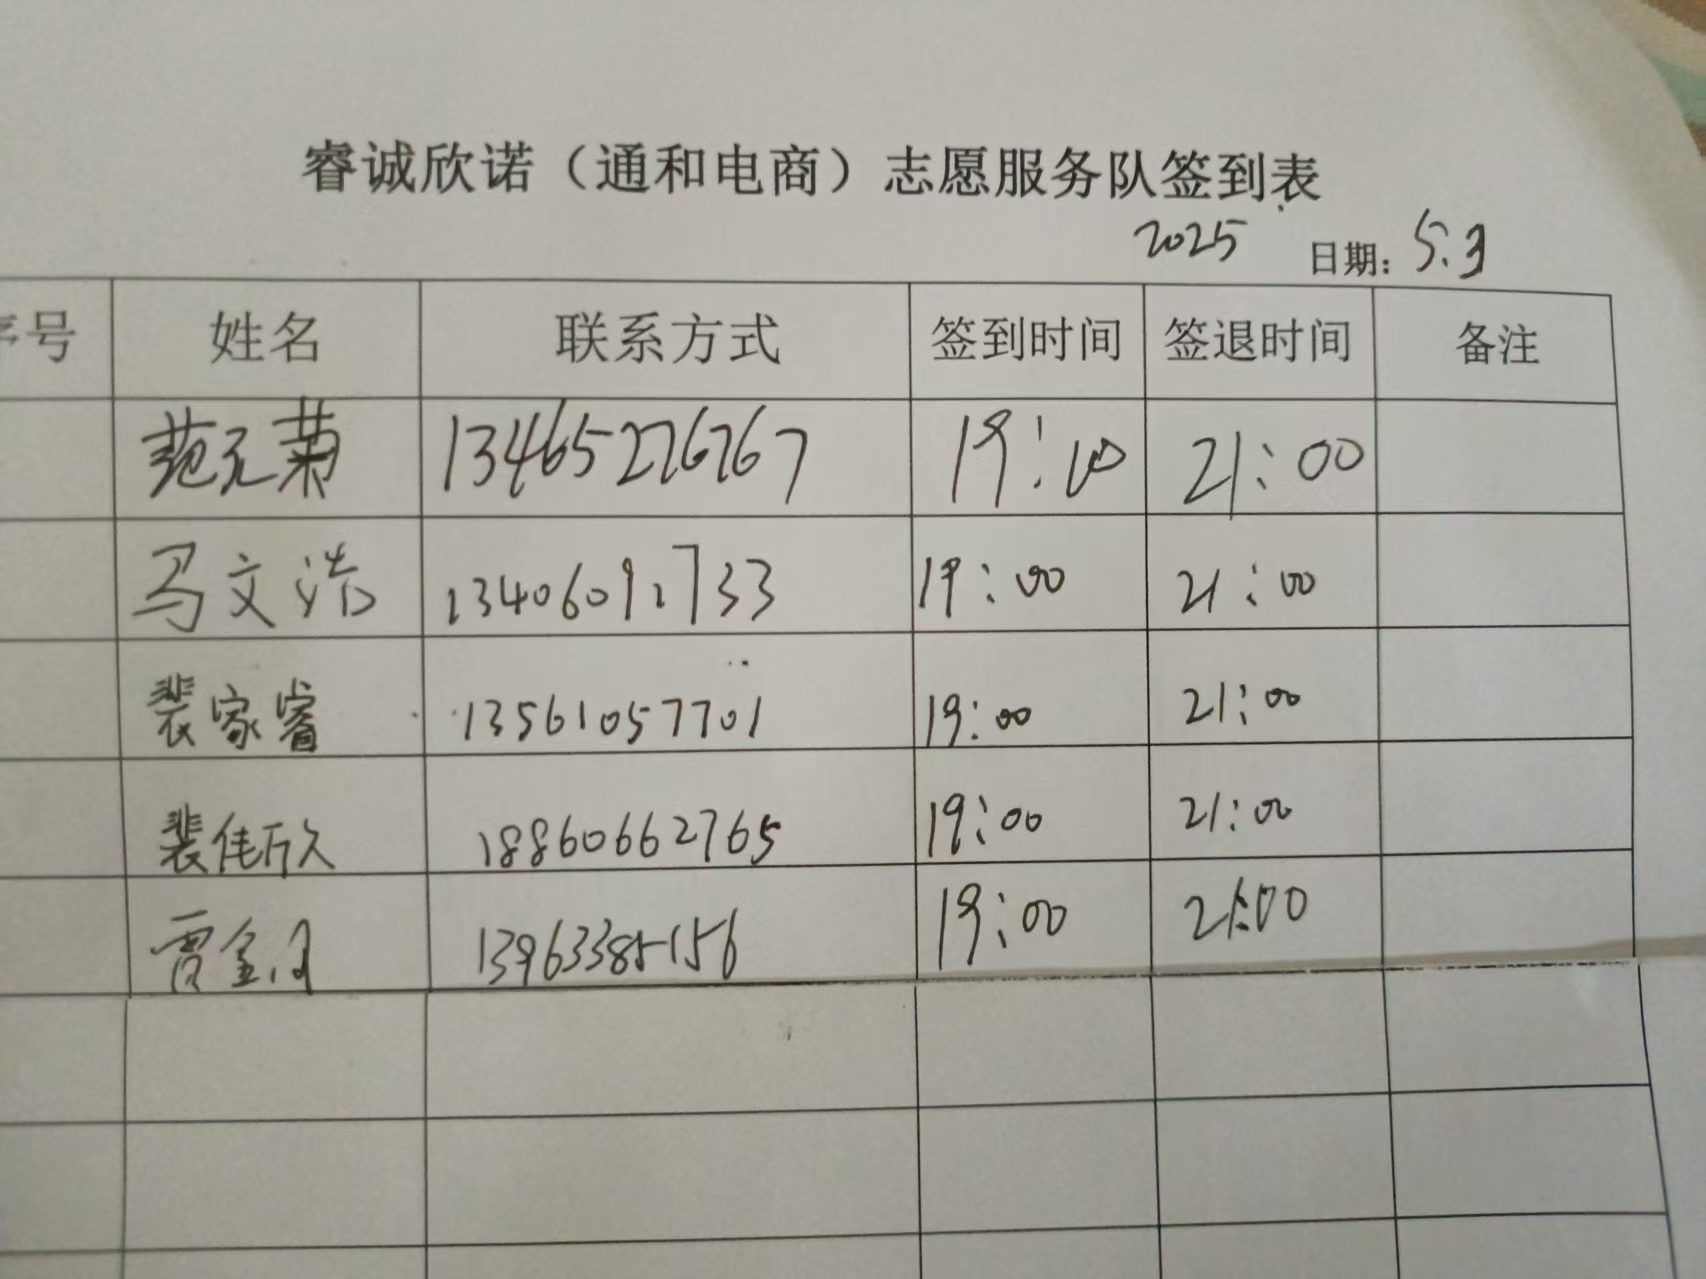 睿诚欣诺（通和电商）志愿服务队签到表
2025 日期：5.3
序号 姓名 联系方式 签到时间 签退时间 备注
范元菊 13465276767 19:00 21:00
马文浩 13406092733 19:00 21:00
裴家睿 13561057701 19:00 21:00
裴佳欣 18860662765 19:00 21:00
贾金月 13963385156 19:00 21:00